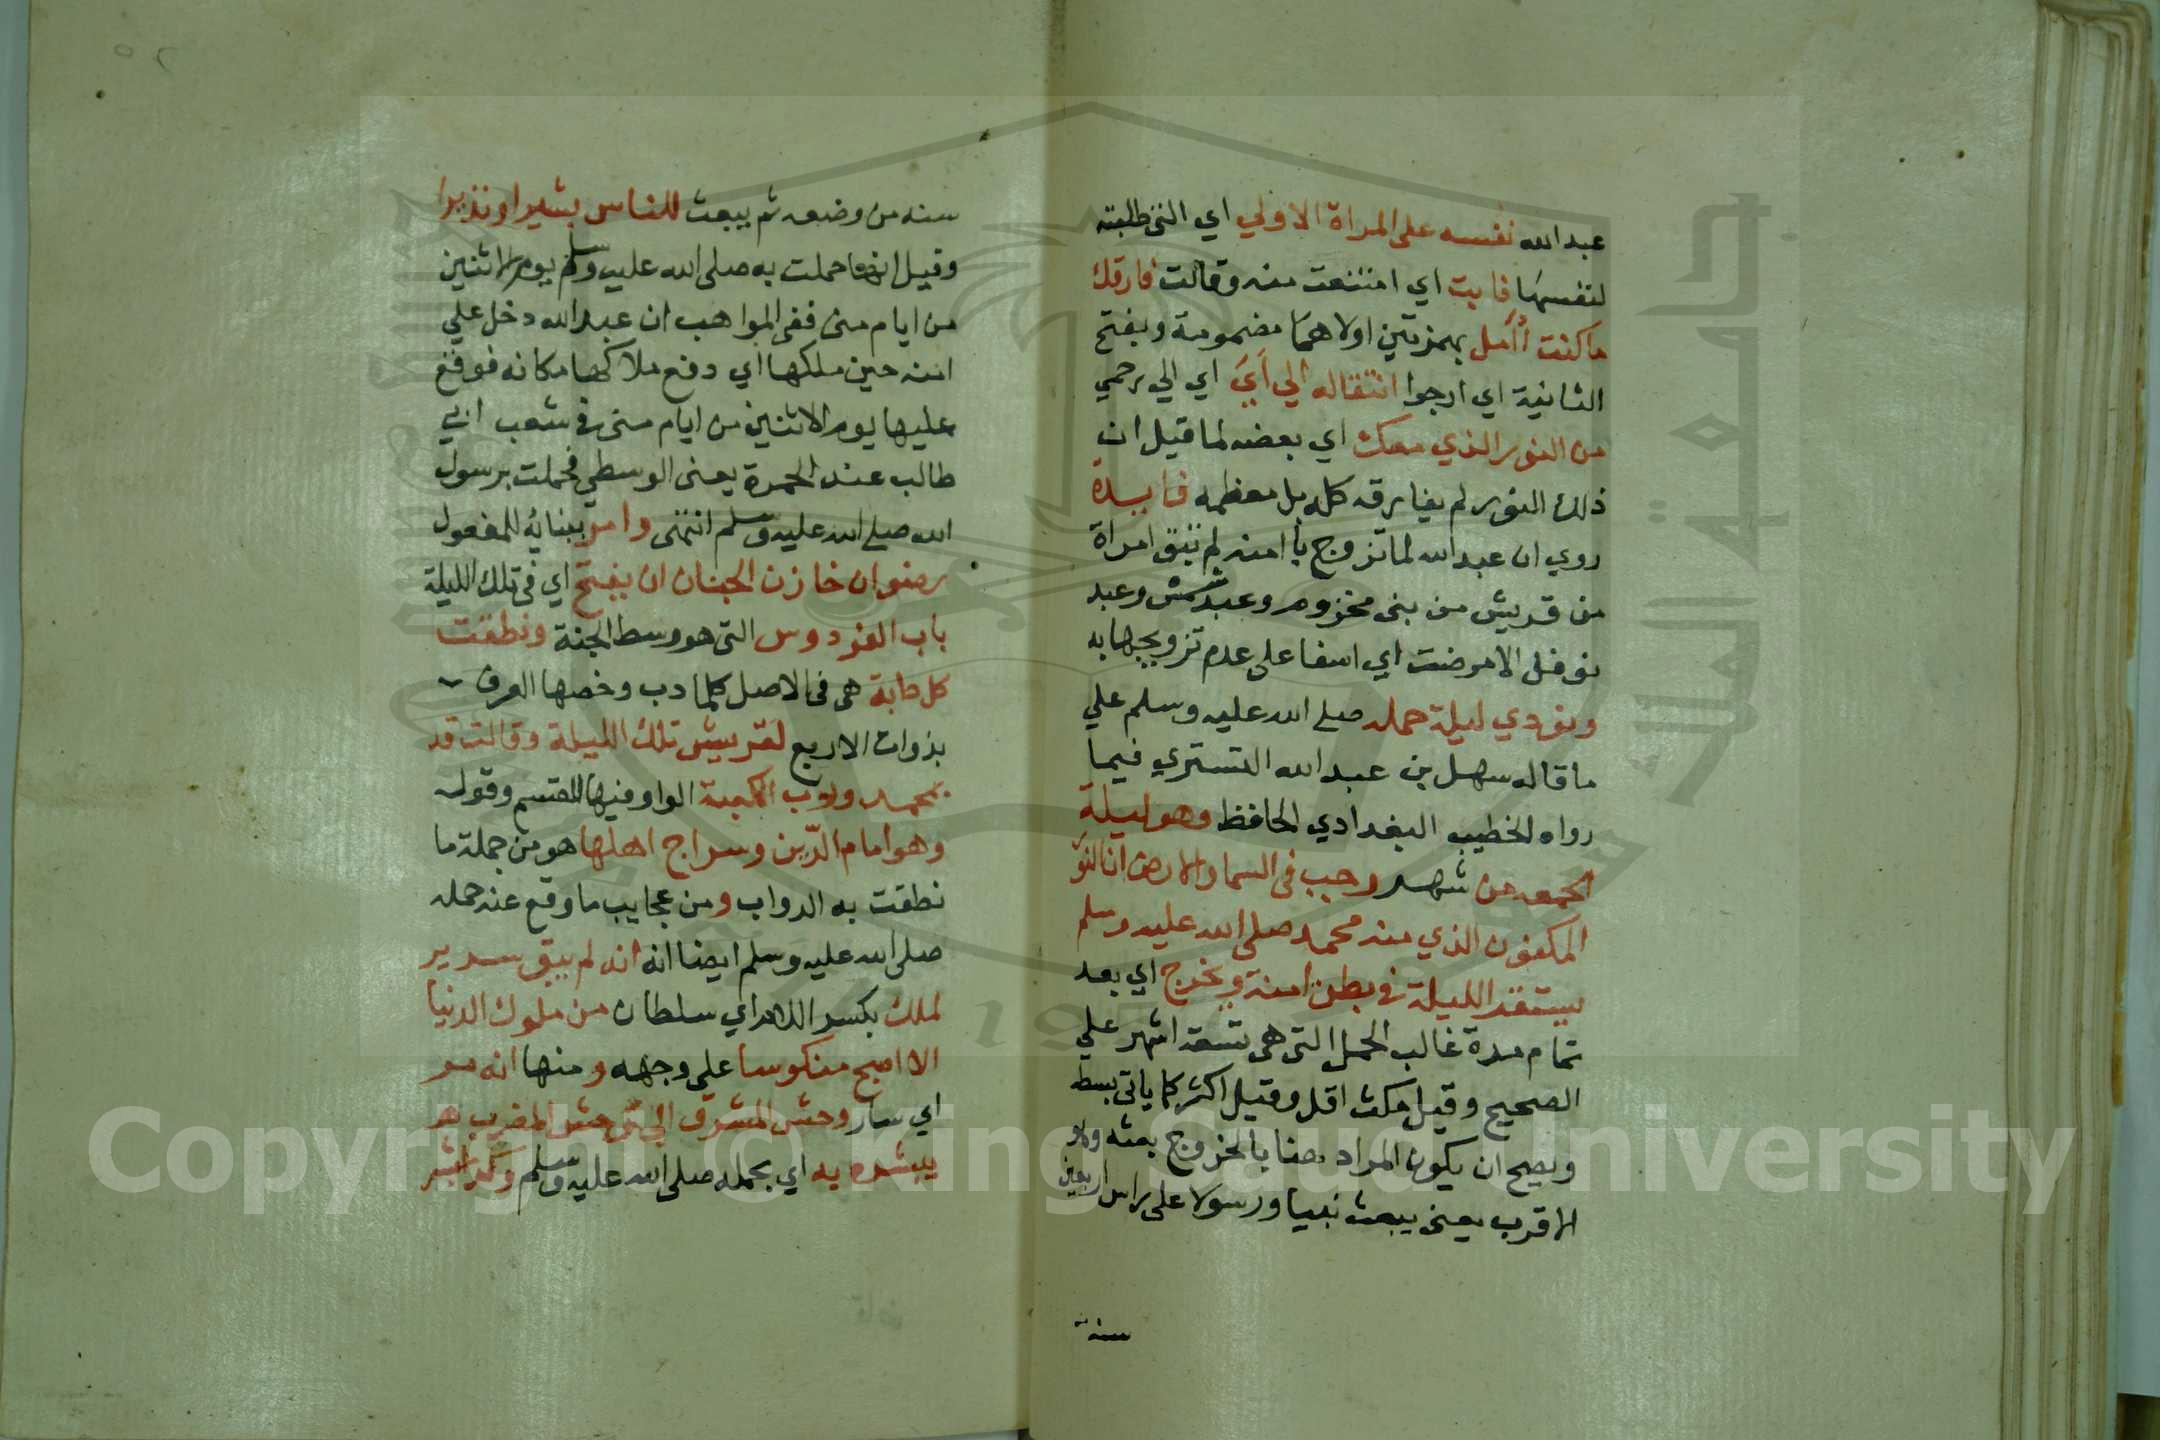 عبد الله نفسه على المراة الاولي اي التي طلبته
لنفسها فابت اي امتنعت منه وقالت فارقك
ما كنت أأمل بهمزتين اولاهما مضمومة وبفتح
الثانية اي ارجوا انتقاله الي اَيَ اي الي رحمي
من النور الذي معك اي بعضه لما قيل ان
ذلك النور لم يفارقه كله بل معظمه فايدة
روي ان عبد الله لما تزوج بامنه لم تبق امراة
من قريش من بني مخزوم وعبد شمس وعبد
نوفل الا مرضت اي اسفا على عدم تزويجها به
ونودي ليلة حمله صلى الله عليه وسلم علي
ما قاله سهل بن عبد الله التستري فيما
رواه الخطيب البغدادي الحافظ وهو ليلة
الجمعه من شهر رجب في السما والارض ان النور
المكنون الذي منه محمد صلى الله عليه وسلم
يستقر الليلة في بطن امنة ويخرج اي بعد
تمام مدة غالب الحمل التي هي تسعة اشهر علي
الصحيح وقيل مكث اقل وقيل اكثر كما ياتي بسطه
ويصح ان يكون المراد هنا بالخروج بعثه وهو
الاقرب يعني يبعث نبيا ورسولا على راس اربعين
سنة
سنه من وضعه ثم يبعث للناس بشيرا ونذيرا
وقيل انها حملت به صلى الله عليه وسلم يوم الاثنين
من ايام منى ففي المواهب ان عبد الله دخل علي
امنه حين ملكها اي دفع ملاكها مكانه فوقع
عليها يوم الاثنين من ايام منى في شعب ابي
طالب عند الجمرة يعني الوسطي فحملت برسول
الله صلى الله عليه وسلم انتهى وامر ببنائه للمفعول
رضوان خازن الجنان ان يفتح اي في تلك الليلة
باب الفردوس التي هو وسط الجنة ونطقت
كل دابة هي في الاصل كلما دب وخصها العرف
بذوات الاربع لقريش تلك الليلة وقالت قد
بمحمد ورب الكعبة الواو فيها للقسم وقوله
وهو امام الدين وسراج اهلها هو من جملة ما
نطقت به الدواب ومن عجايب ما وقع عند حمله
صلى الله عليه وسلم ايضا انه انه لم يبق سرير
لملك بكسر اللام اي سلطان من ملوك الدنيا
الا اصبح منكوسا على وجهه ومنها انه مر
اي سار وحش المشرق الي وحش المغرب
يبشره به اي بحمله صلى الله عليه وسلم وكذا بشر
Copyright © King Saud University
جامعة الملك سعود